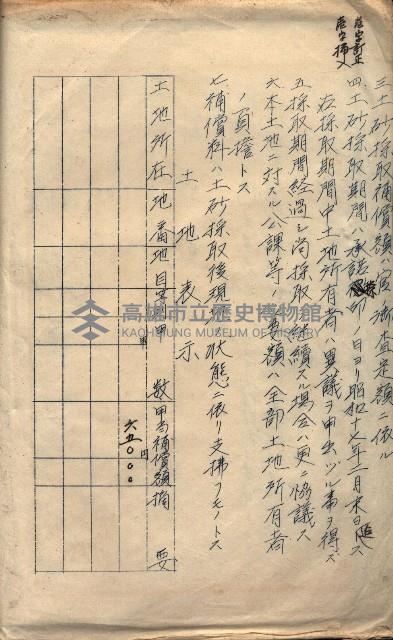 壱字訂正
壱字挿入
三土砂採取補償額ハ官廳査定額ニ依ル
四土砂採取期間ハ承諾捺印ノ日ヨリ昭和十七年三月末日迄トス
右採取期間中土地所有者ハ異議ヲ申出ヅル事ヲ得ズ
五採取期間経過シ尚採取継続スル場合ハ更ニ協議ス
六本土地ニ対スル公課等ノ負額ハ全部土地所有者
ノ負擔トス
七補償料ハ土砂採取後現状態ニ依リ支拂フモノトス
土地表示
土地所在 地番 地目 等則 甲数 甲当補償額 摘要
甲
円
六五〇〇〇
高雄市立歷史博物館
KAOHSIUNG MUSEUM OF HISTORY